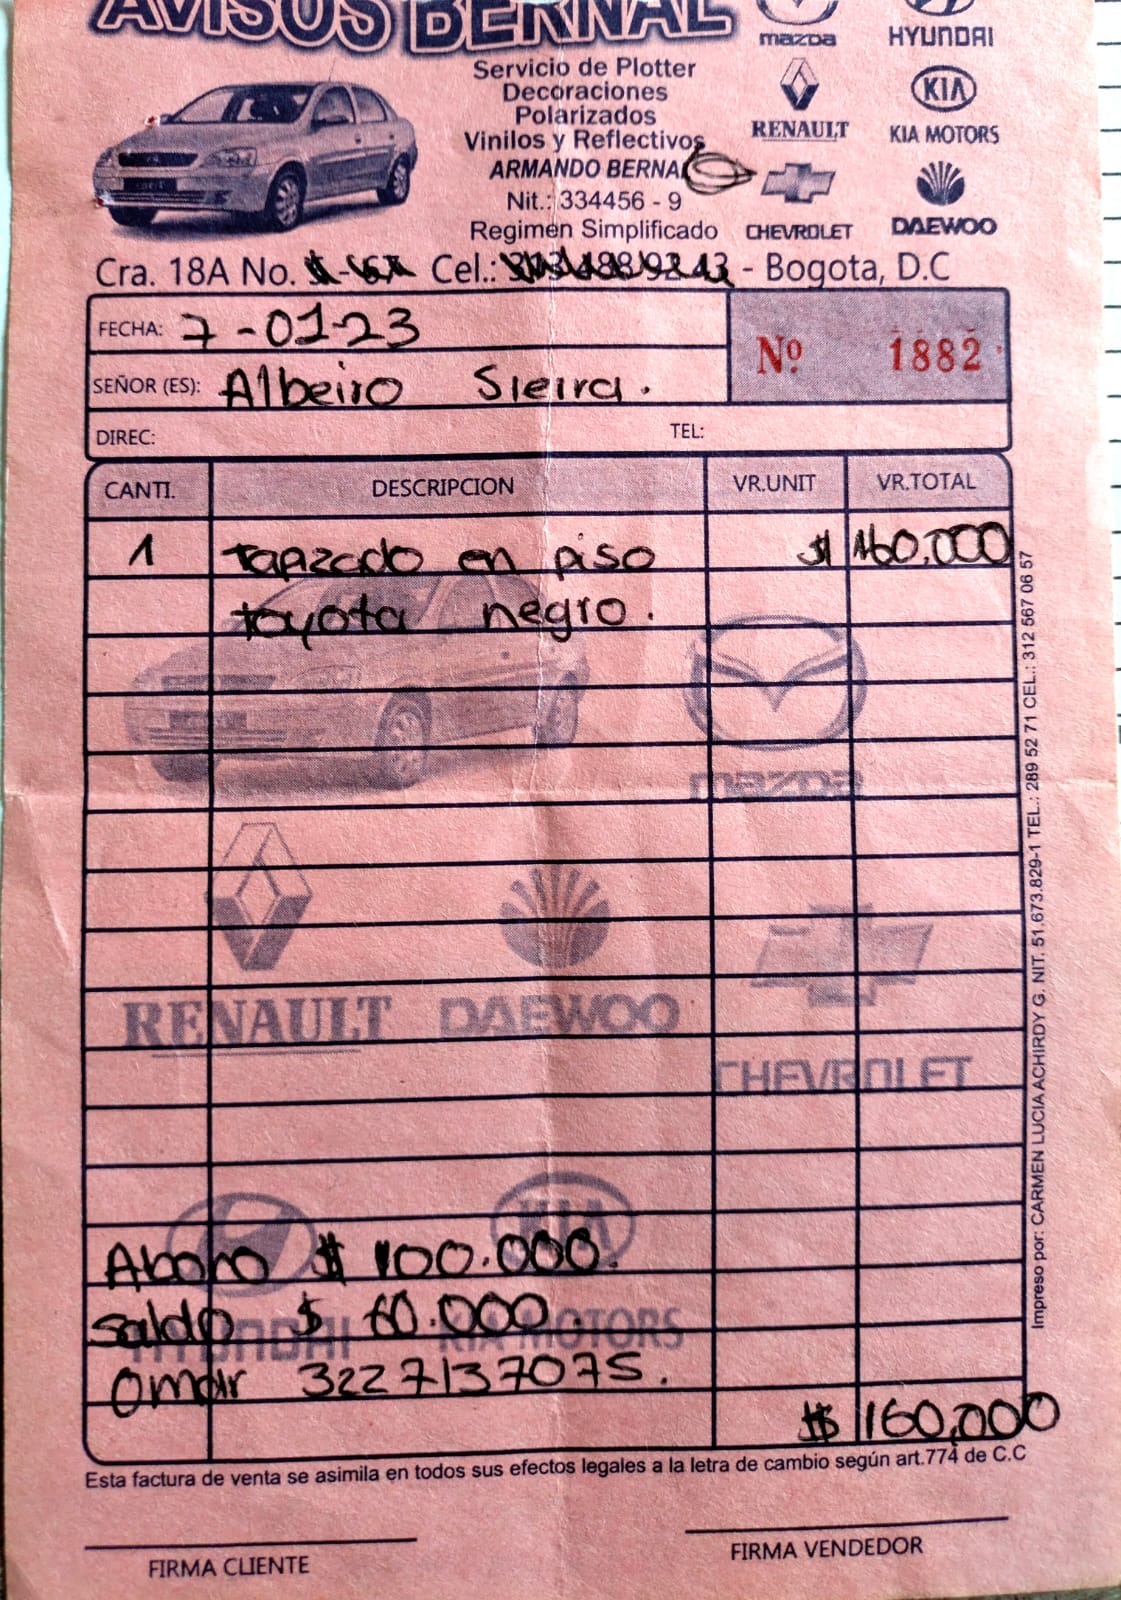 AVISOS BERNAL
mazda
HYUNDAI
Servicio de Plotter
Decoraciones
Polarizados
Vinilos y Reflectivos
ARMANDO BERNAL
Nit.: 334456 - 9
Regimen Simplificado
RENAULT
KIA
KIA MOTORS
CHEVROLET
DAEWOO
Cra. 18A No. Cel.: - Bogota, D.C
FECHA: 7-01-23
Nº 1882
SEÑOR (ES): Albeiro Sierra.
DIREC: TEL:
CANTI. DESCRIPCION VR.UNIT VR.TOTAL
1 tapizado en piso $ 160.000
toyota negro.
mazda
RENAULT
DAEWOO
CHEVROLET
KIA
Abono $ 100.000.
Saldo $ 60.000.
HYUNDAI
KIA MOTORS
Omar 3227137075.
$ 160,000
Esta factura de venta se asimila en todos sus efectos legales a la letra de cambio según art.774 de C.C
FIRMA CLIENTE
FIRMA VENDEDOR
Impreso por: CARMEN LUCIA ACHIRDY G. NIT. 51.673.829-1 TEL.: 289 52 71 CEL.: 312 567 06 57